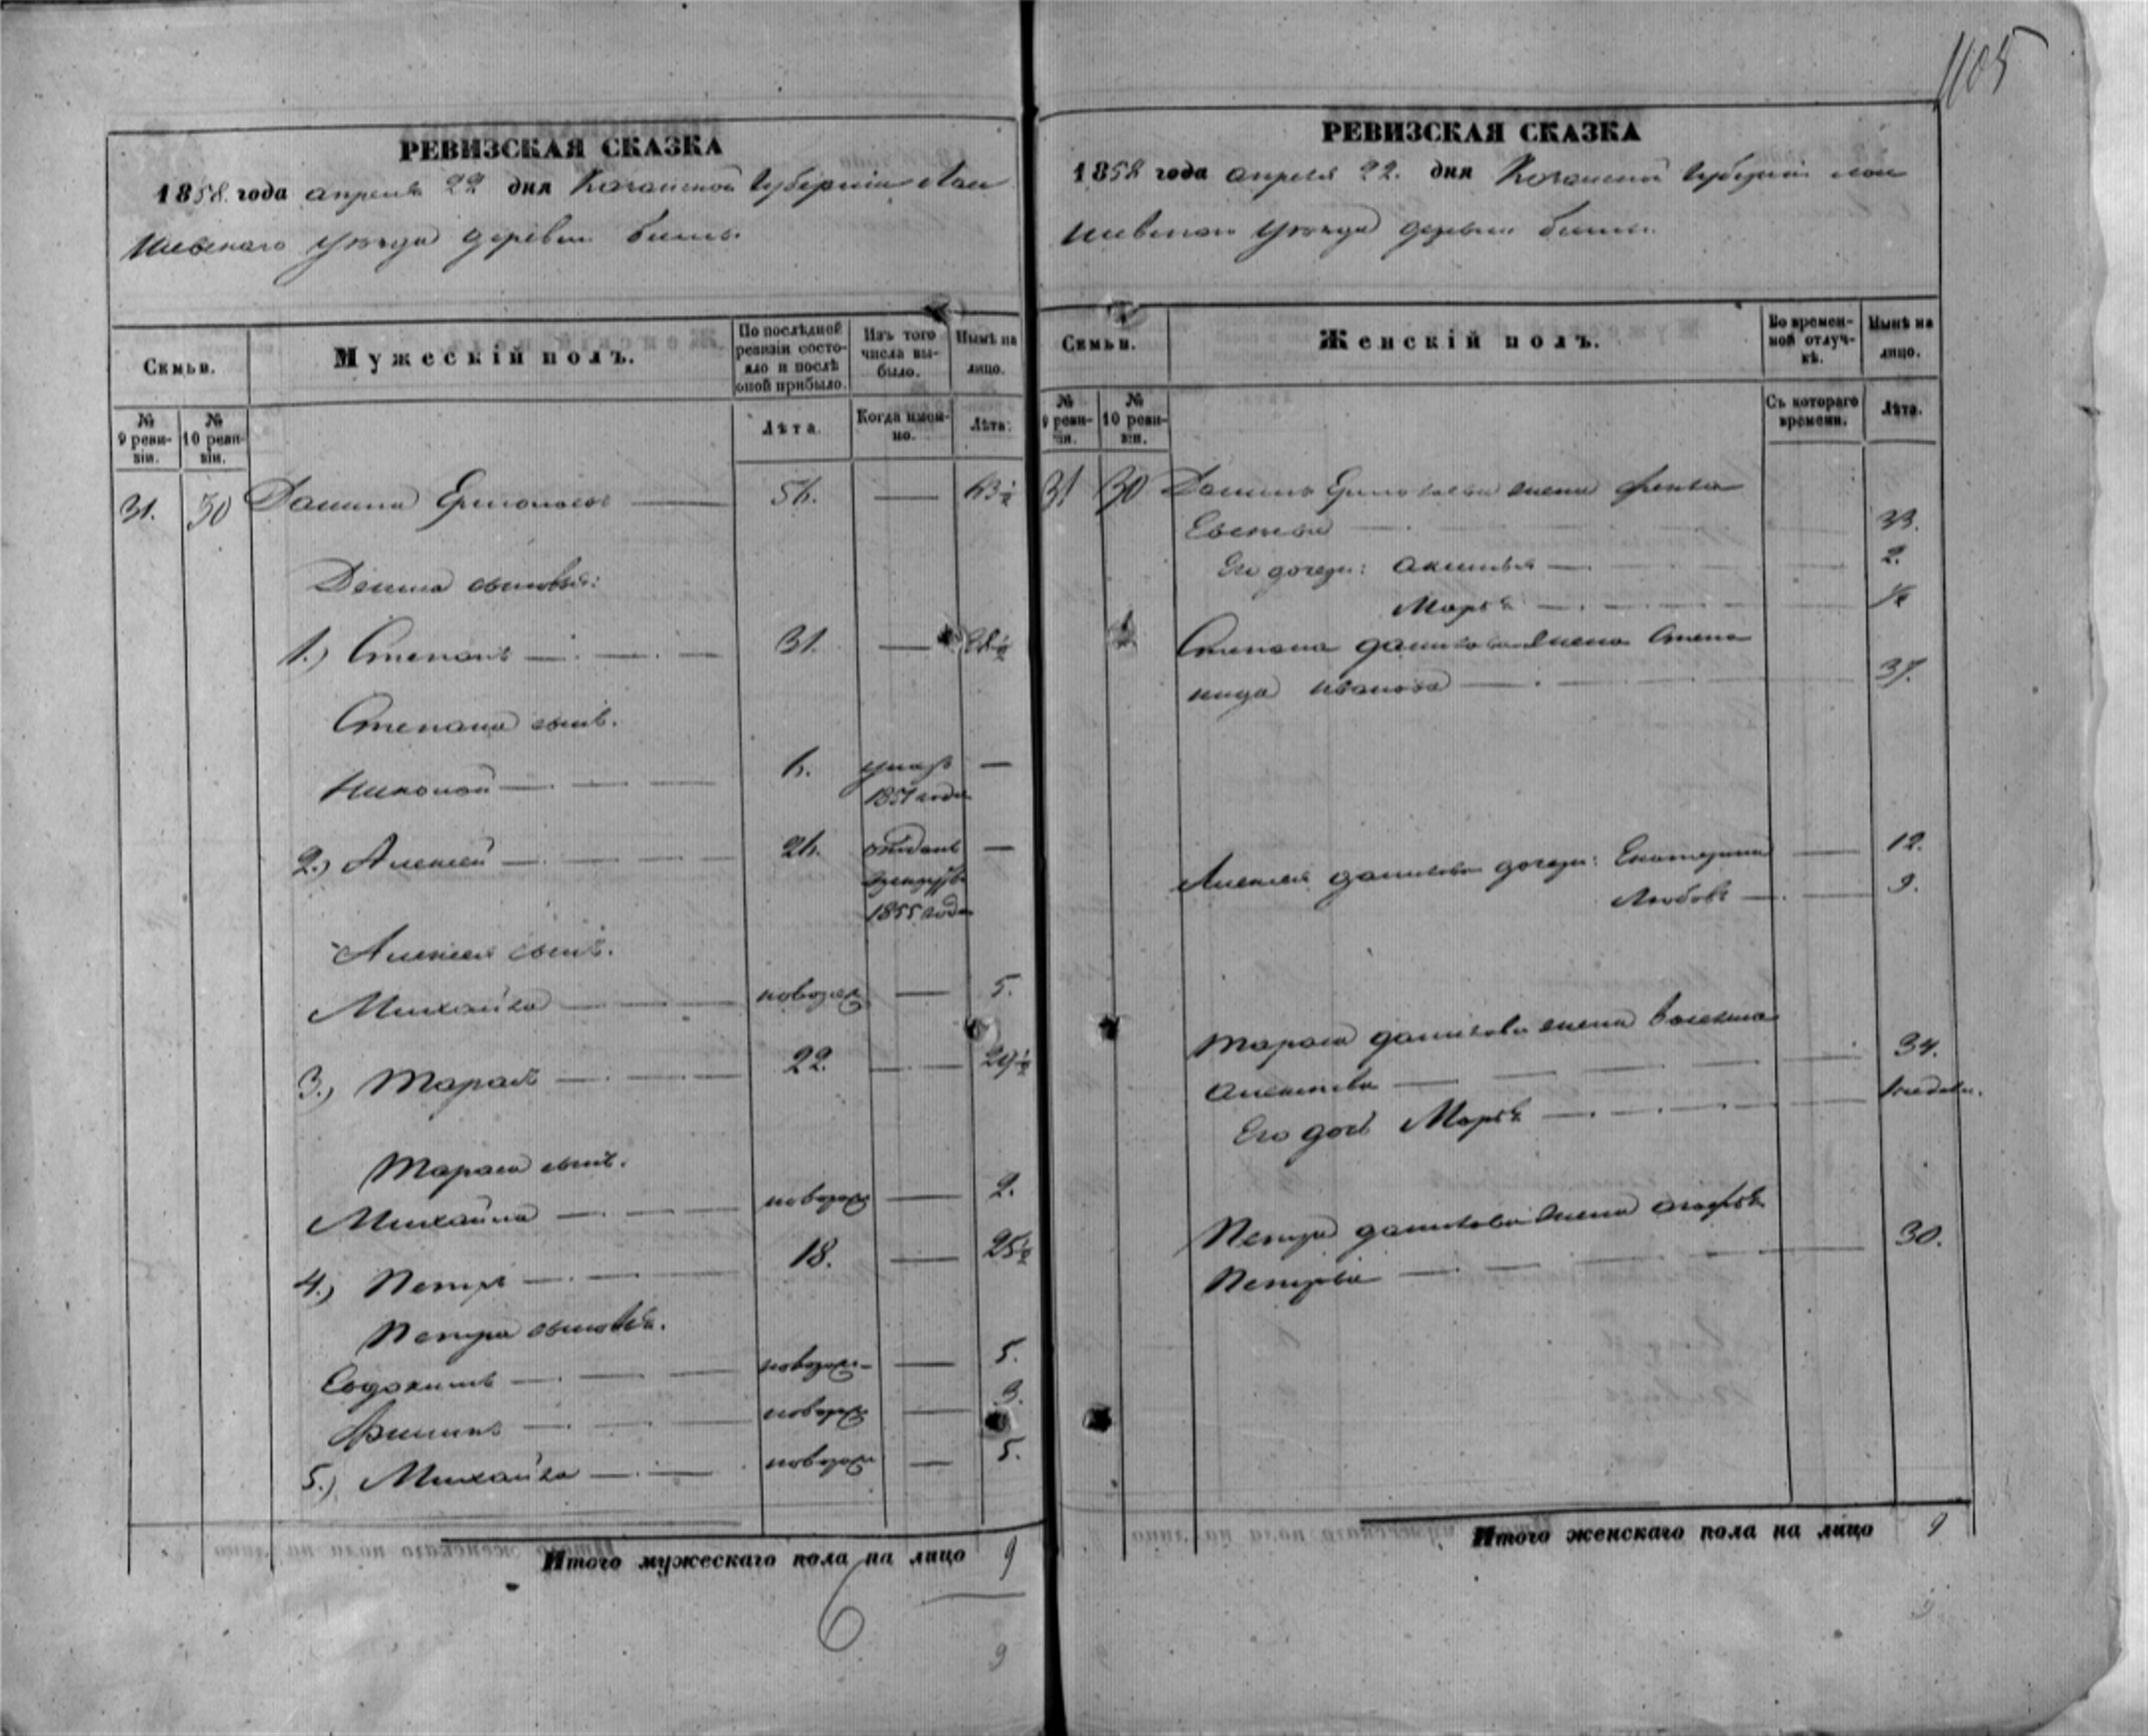 1105
РЕВИЗСКАЯ СКАЗКА
1858 года апреля 22 дня Казанской Губернии Лаи
шевскаго уѣзда деревни
Семьи.
Мужескій полъ.
По послѣдней ревизіи состояло и послѣ оной прибыло.
Изъ того числа выбыло.
Нынѣ на лицо.
№ 9 ревизіи.
№ 10 ревизіи.
Лѣта.
Когда именно.
Лѣта.
31. 30 Данила 56. — 63½
Данила сыновья:
1.) Степанъ — 31. —
Степана сынъ.
Николай — 6. умеръ —
1851 года
2.) Алексей — 26. отданъ —
в рекруты
1855 года
Алексея сынъ.
Михайла — новорож — 5.
3.) Тарасъ — 22. — 29½
Тараса сынъ.
Михайла — новорож — 2.
4.) Петръ — 18. — 25½
Петра сыновья.
Евдокимъ — новорож — 5.
Филипъ — новорож — 3.
5.) Михайла — новорож — 5.
Итого мужескаго пола на лицо 9
6
9
РЕВИЗСКАЯ СКАЗКА
1858 года апреля 22. дня Казанской Губернии лаи
шевскаго уѣзда деревни
Семьи.
Женскій полъ.
Во временной отлучкѣ.
Нынѣ на лицо.
№ 9 ревизіи.
№ 10 ревизіи.
Съ котораго времени.
Лѣта.
31 30 Данила жена
33.
Его дочери: Акулина — 2.
Марья — ½
Степана данилова жена Степа
нида иванова — 37.
Алексея данилова дочери: Екатерина — 12.
Любовь — 9.
Тараса данилова жена
— 34.
Его дочь Марья — недели.
Петра данилова жена агафья
Петрова — 30.
Итого женскаго пола на лицо 9